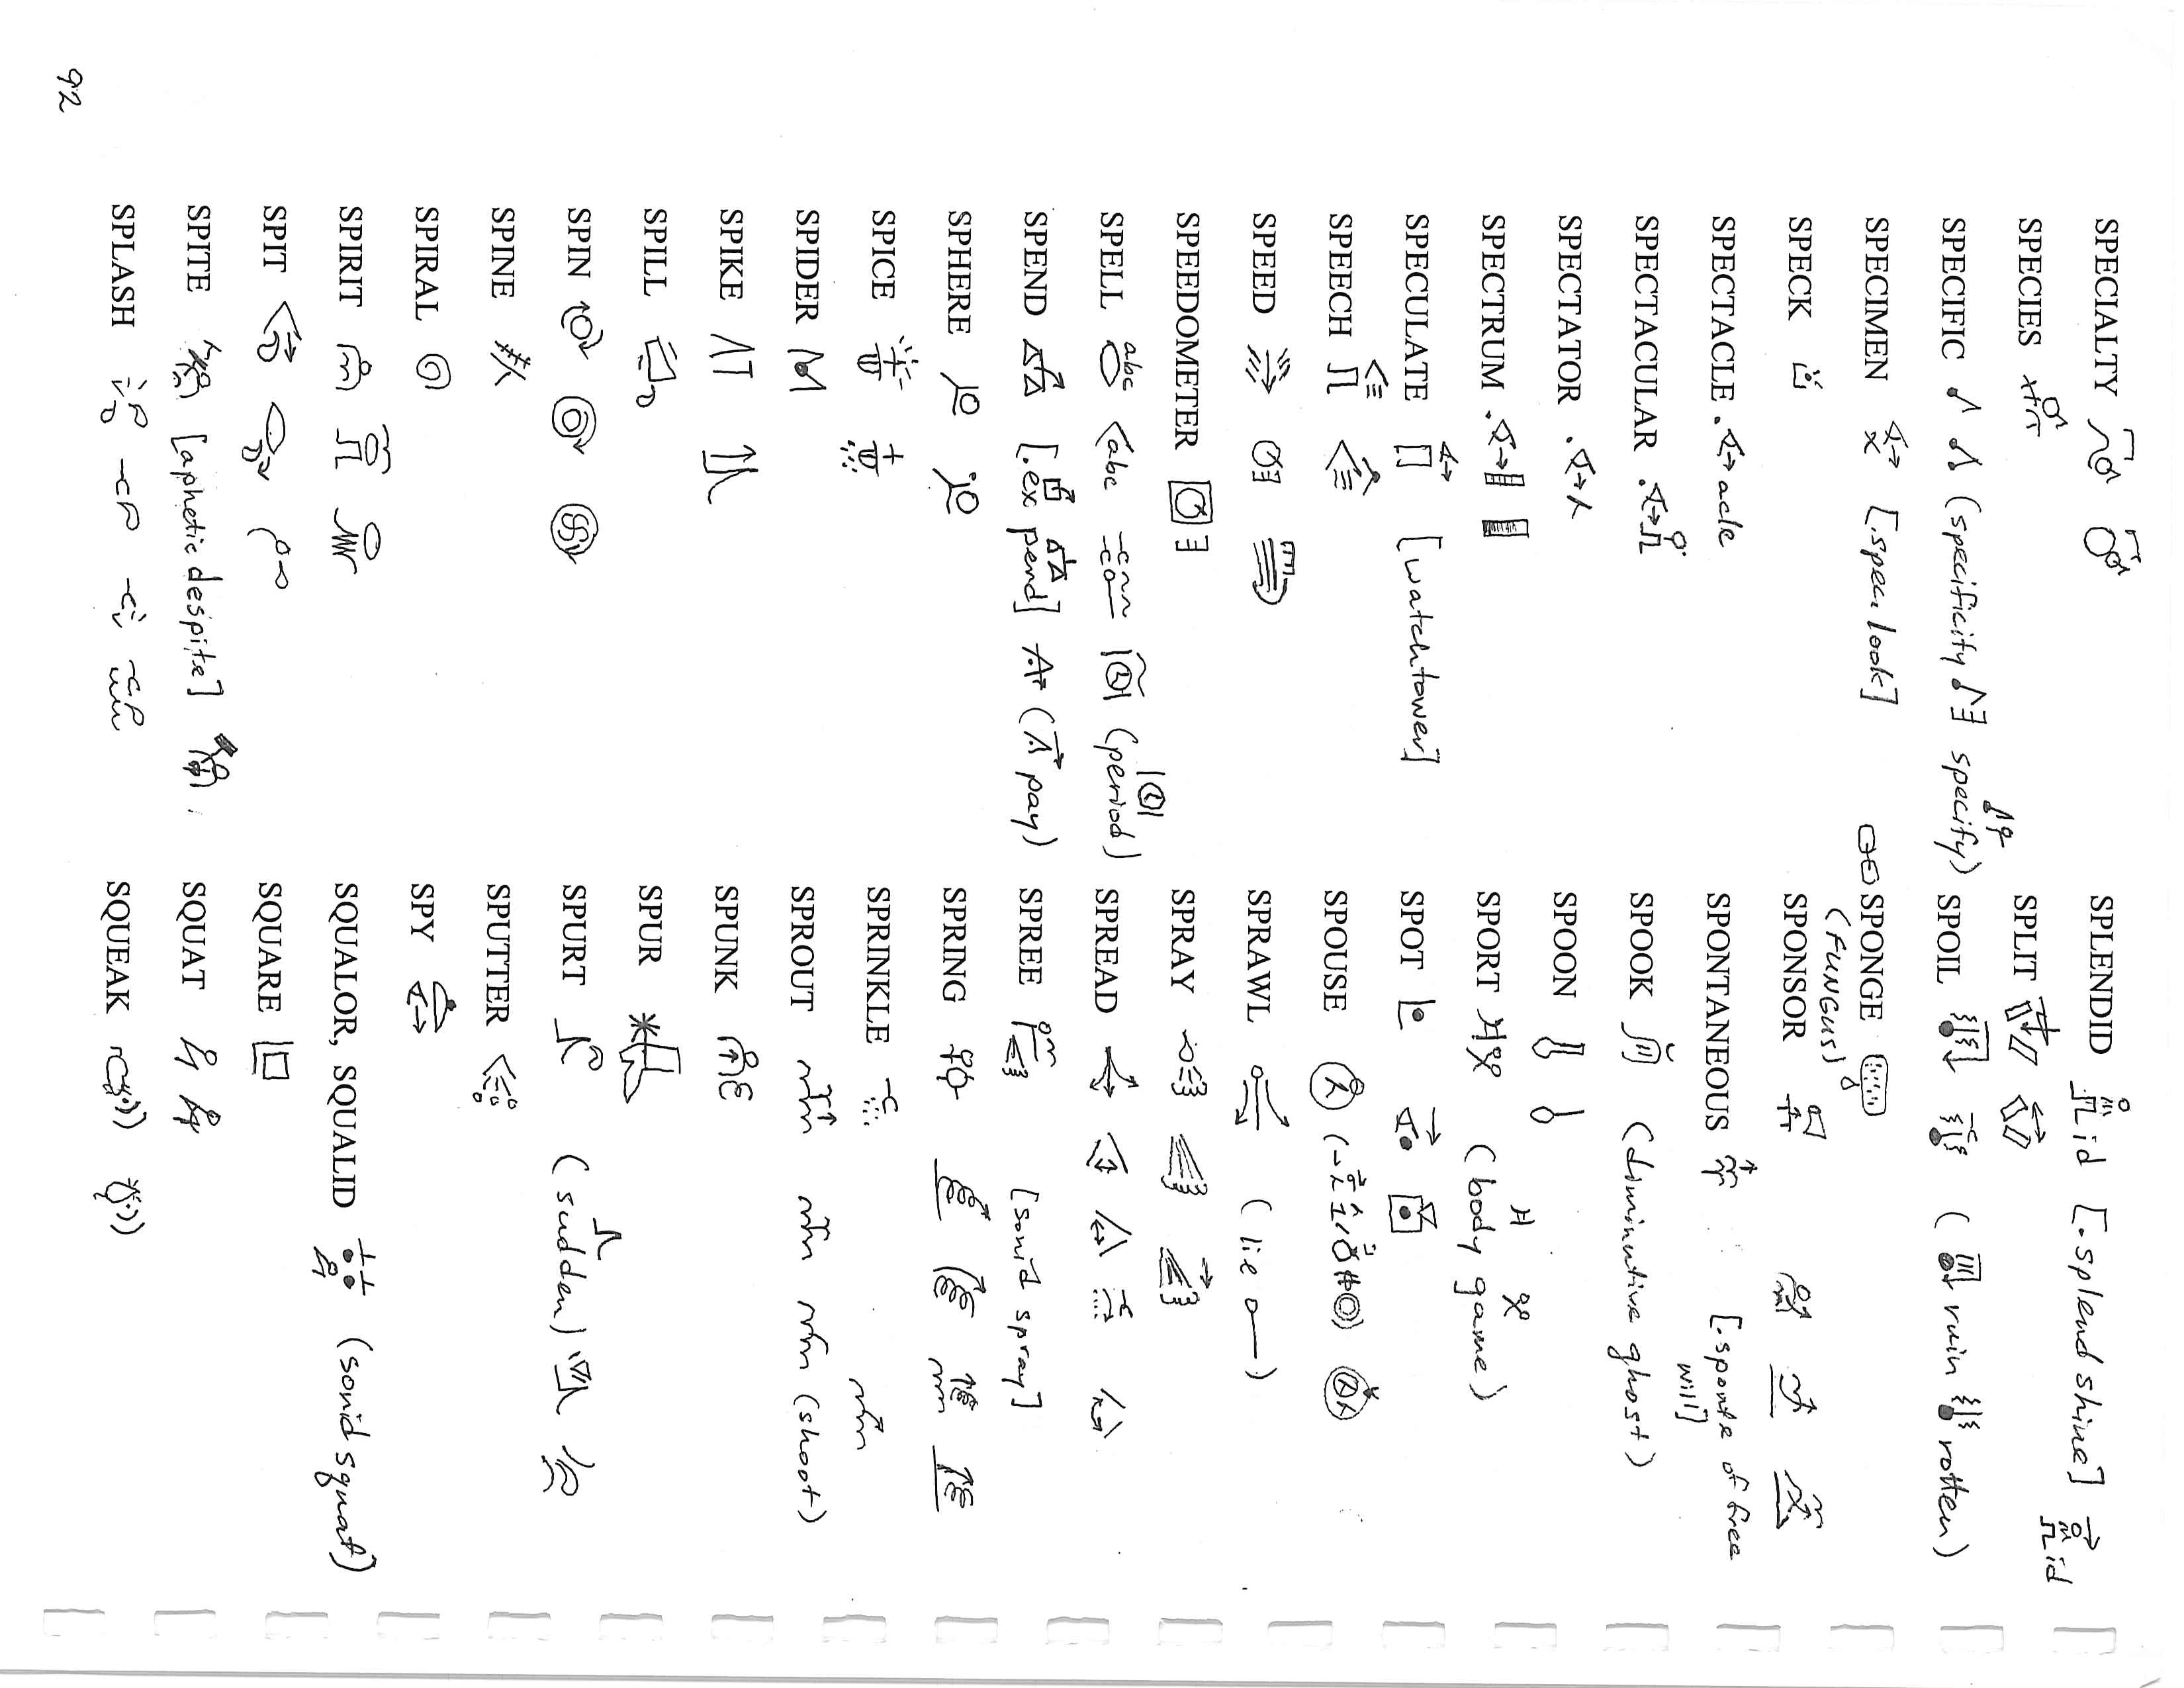 SPECIALTY
SPECIES
SPECIFIC (specificity specify)
SPECIMEN [.spec. look]
SPECK
SPECTACLE .acle
SPECTACULAR
SPECTATOR
SPECTRUM
SPECULATE [watchtower]
SPEECH
SPEED
SPEEDOMETER
SPELL abc abc (period)
SPEND [.ex pend] (pay)
SPHERE
SPICE
SPIDER
SPIKE
SPILL
SPIN
SPINE
SPIRAL
SPIRIT
SPIT
SPITE [aphetic despite]
SPLASH
SPLENDID id [.splend shine] id
SPLIT
SPOIL (ruin rotten)
SPONGE
(FUNGUS)
SPONSOR
SPONTANEOUS [.sponte of free
will]
SPOOK (diminutive ghost)
SPOON
SPORT (body game)
SPOT
SPOUSE
SPRAWL (lie)
SPRAY
SPREAD
SPREE [sonid spray]
SPRING
SPRINKLE
SPROUT (shoot)
SPUNK
SPUR
SPURT (sudden)
SPUTTER
SPY
SQUALOR, SQUALID (sonid squat)
SQUARE
SQUAT
SQUEAK
92